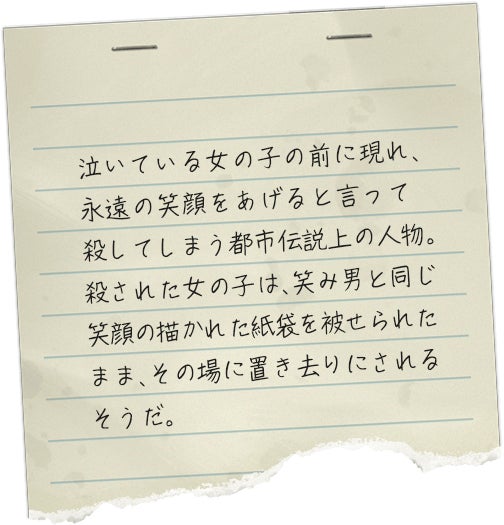 泣いている女の子の前に現れ、
永遠の笑顔をあげると言って
殺してしまう都市伝説上の人物。
殺された女の子は、笑み男と同じ
笑顔の描かれた紙袋を被せられた
まま、その場に置き去りにされる
そうだ。